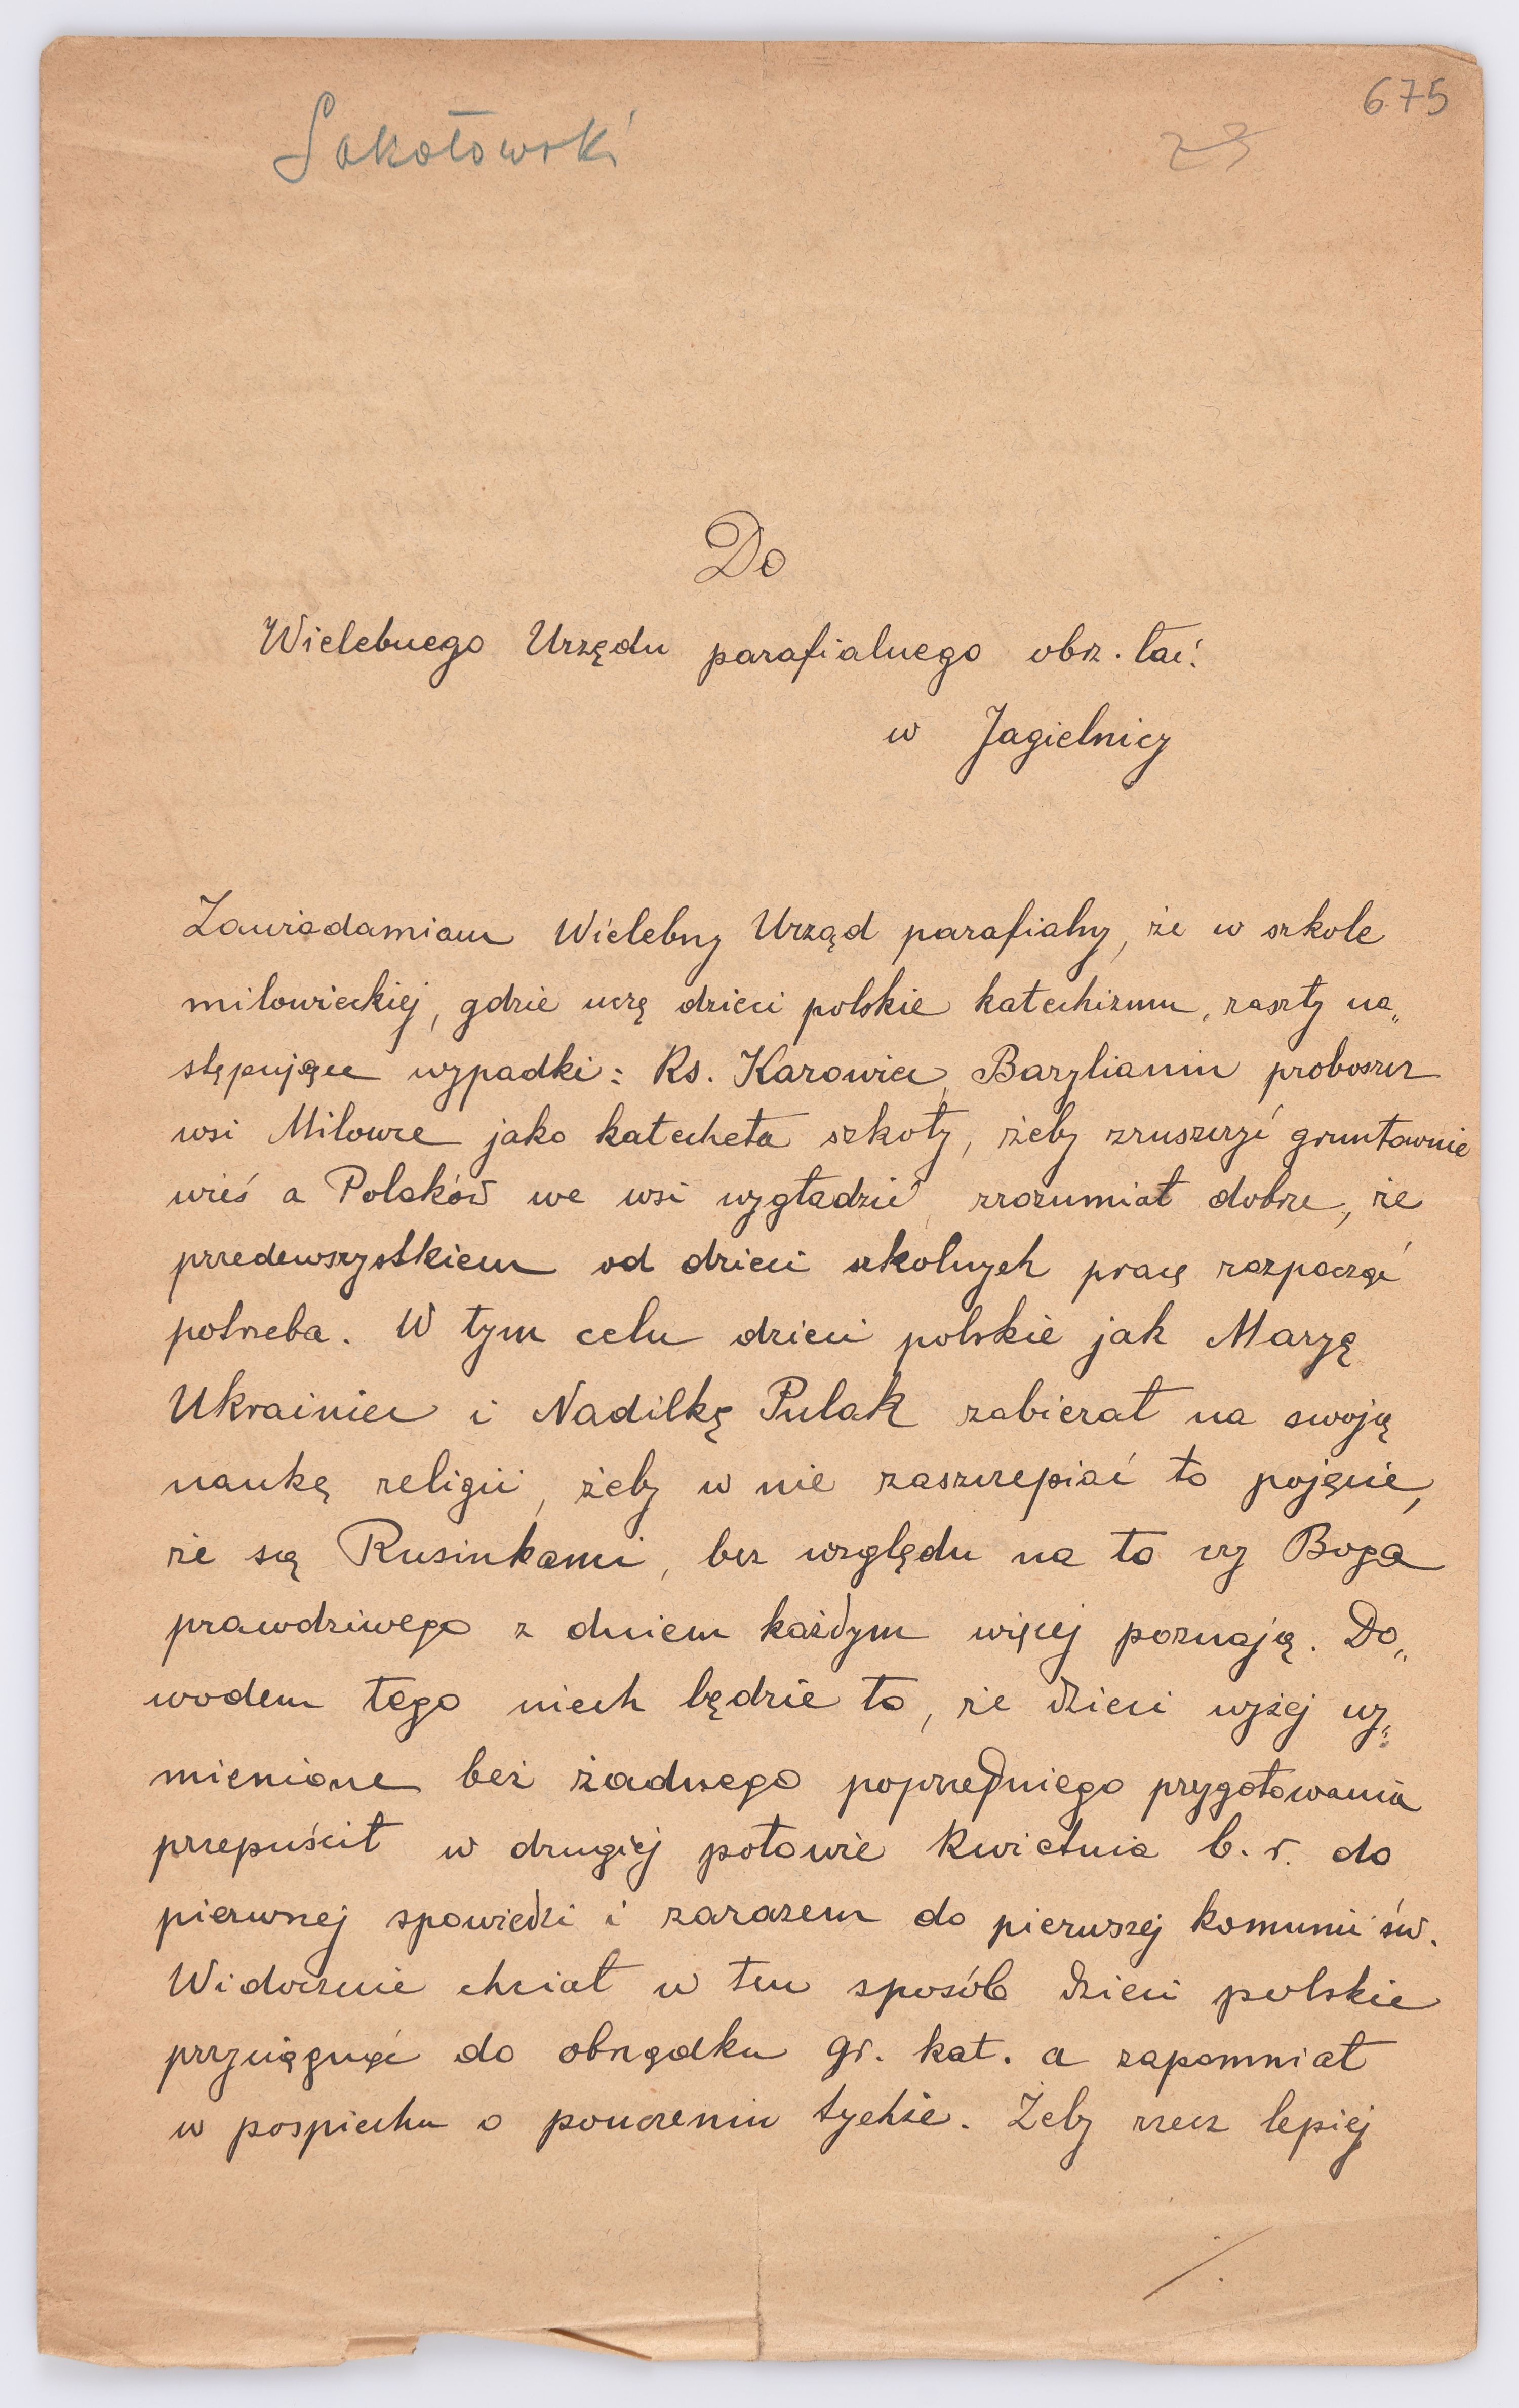 675
Sokołowski
Do
Wielebnego Urzędu parafialnego obrz. łać.
w Jagielnicy
Zawiadamiam Wielebny Urząd parafialny, że w szkole
milowieckiej, gdzie uczę dzieci polskie katechizmu, zaszły na„
stępujące wypadki: Ks. Karowiec, Bazylianin proboszcz
wsi Milowce jako katecheta szkoły, żeby zruszczyć gruntownie
wieś a Polaków we wsi wygładzić, zrozumiał dobrze, że
przedewszystkiem od dzieci szkolnych pracę rozpocząć
potrzeba. W tym celu dzieci polskie jak Marzę
Ukrainiec i Nadilkę Pulak zabierał na swoją
naukę religii, żeby w nie zaszczepiać to pojęcie,
że są Rusinkami, bez względu na to czy Boga
prawdziwego z dniem każdym więcej poznają. Do„
wodem tego niech będzie to, że dzieci wyżej wy„
mienione bez żadnego poprzedniego przygotowania
przepuścił w drugiej połowie kwietnia b. r. do
pierwszej spowiedzi i zarazem do pierwszej komunii św.
Widocznie chciał w ten sposób dzieci polskie
przyciągnąć do obrządku gr. kat. a zapomniał
w pospiechu o pouczeniu tychże. Żeby rzecz lepiej
./.